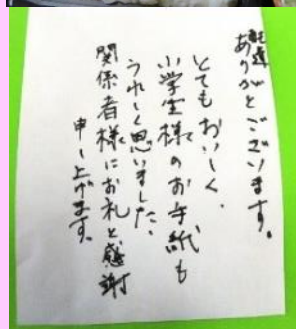 配達
ありがとございます。
とてもおいしく、
小学生様のお手紙も
うれしく思いました、
関係者様にお礼と感謝
申し上げます。